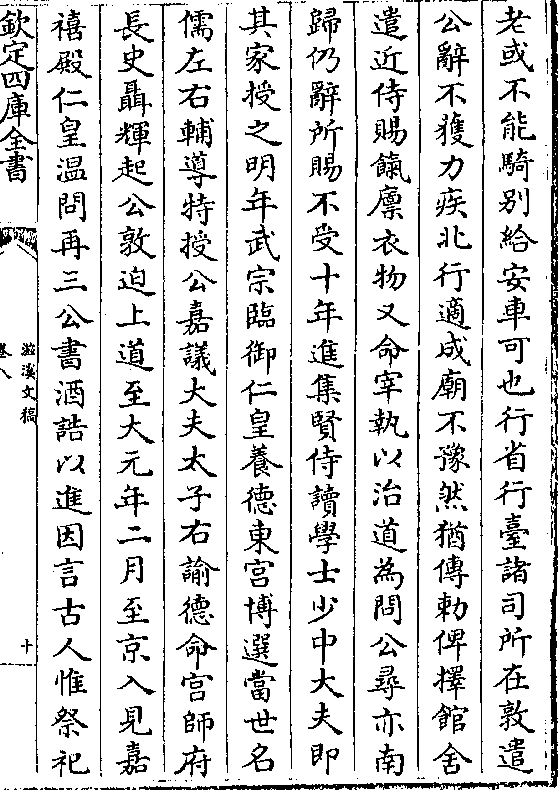 老或不能騎別給安車可也行省行臺諸司所在敦遣
公辭不獲力疾北行適成廟不豫然猶傳勅俾擇館舍
遣近侍賜餼廪衣物又命宰執以治道為問公尋亦南
歸仍辭所賜不受十年進集賢侍讀學士少中大夫即
其家授之明年武宗臨御仁皇養德東宫博選當世名
儒左右輔導特授公嘉議大夫太子右諭德命宫師府
長史聶輝起公敦迫上道至大元年二月至京入見嘉
禧殿仁皇温問再三公書酒誥以進因言古人惟祭祀
欽定四庫全書
滋溪文稿
卷八
十